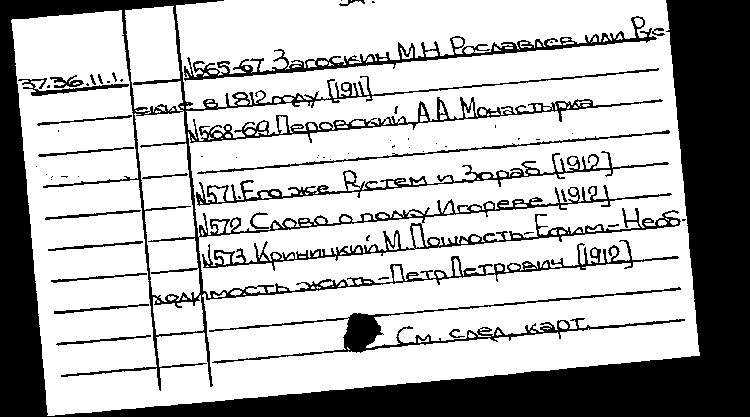 37.36.11.1. №565-67. Загоскин, М.Н. Рославлев или Рус-
ские в 1812 году. [1911]
№568-69. Перовский, А.А. Монастырка
№571. Его же. Рустем и Зораб. [1912]
№572. Слово о полку Игореве. [1912]
№573. Криницкий, М. Пошлость-Ефим-Необ-
ходимость жить-Петр Петрович [1912]
См. след. карт.